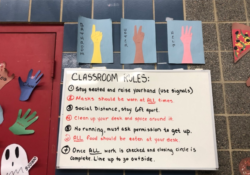 CLASSROOM RULES:
① Stay seated and raise your hand (use signals)
② Masks should be worn at ALL times.
③ Social Distance, stay 6ft apart.
④ Clean up your desk and space around it.
⑤ No running, must ask permission to get up.
⑥ ALL food should be eaten at your desk.
⑦ Once ALL work is checked and closing circle is
complete. Line up to go outside.